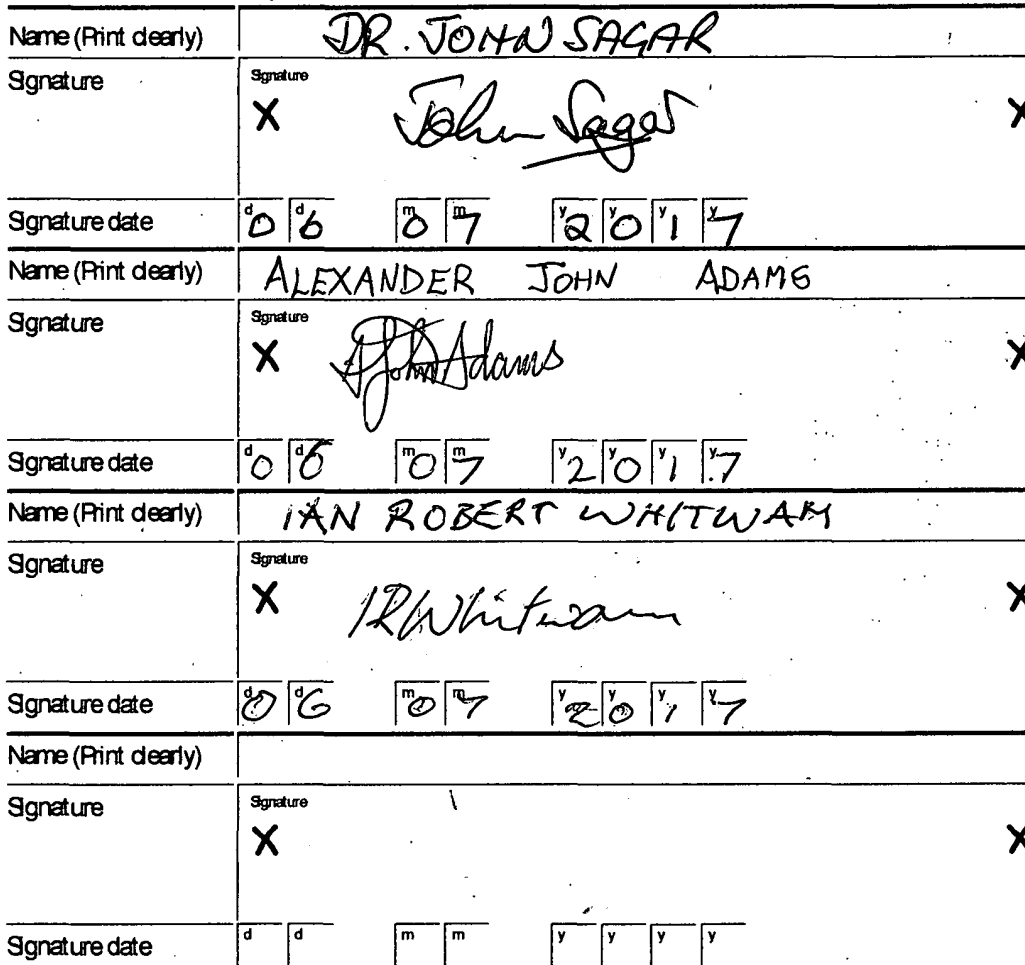 Name (Print clearly) DR. JOHN SAGAR
Signature Signature
X John Sagar X
Signature date d0 d6 m0 m7 y2 y0 y1 y7
Name (Print clearly) ALEXANDER JOHN ADAMS
Signature Signature
X AJohn Adams X
Signature date d0 d6 m0 m7 y2 y0 y1 y7
Name (Print clearly) IAN ROBERT WHITWAM
Signature Signature
X IRWhitwam X
Signature date d0 d6 m0 m7 y2 y0 y1 y7
Name (Print clearly)
Signature Signature
X X
Signature date d d m m y y y y